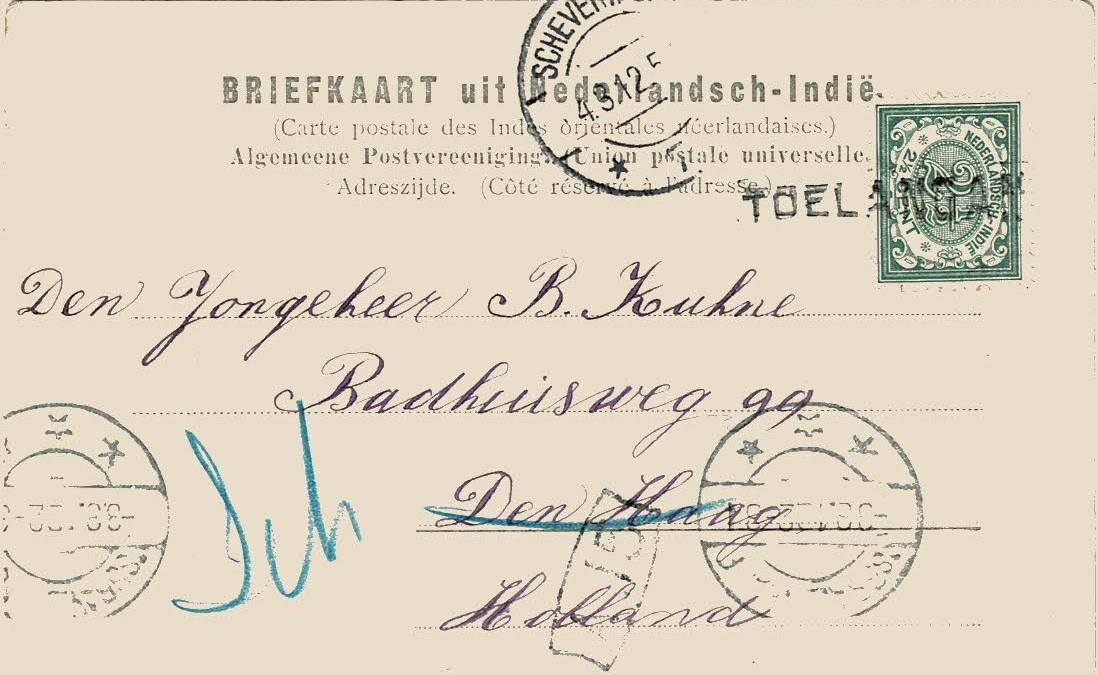 SCHEVENI
4.3.12 5
BRIEFKAART uit Nederlandsch-Indië.
(Carte postale des Indes orientales néerlandaises.)
Algemeene Postvereeniging. (Union postale universelle.
Adreszijde. (Côté réservé à l'adresse.)
NEDERLANDSCH-INDIE
2½ CENT
TOELANGAN
Den Jongeheer B. Kuhne
Badhuisweg 99
Den Haag
Holland
Sch